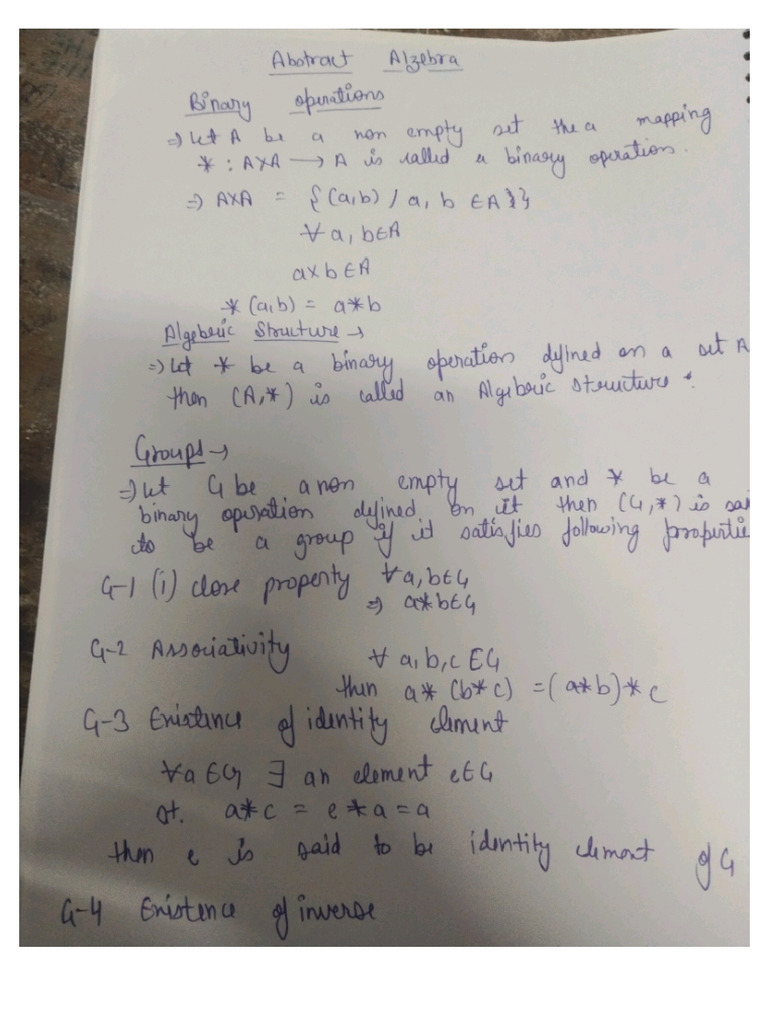 Abstract Algebra
Binary operations
⇒ Let A be a non empty set the a mapping
* : A×A → A is called a binary operation.
⇒ A×A = {(a,b) / a, b ∈ A}}
∀ a, b ∈ A
a×b ∈ A
* (a,b) = a*b
Algebric Structure →
⇒ Let * be a binary operation dyfined on a set A
then (A,*) is called an Algebric structure.
Groups →
⇒ Let G be a non empty set and * be a
binary operation dyfined on it then (G,*) is sai
to be a group if it satisfies following propertie
G-1 (i) close property ∀ a, b ∈ G
⇒ a*b ∈ G
G-2 Associativity ∀ a, b, c ∈ G
then a* (b*c) = (a*b)*c
G-3 Existence of identity element
∀ a ∈ G ∃ an element e ∈ G
st. a*c = e*a = a
then e is said to be identity element of G
G-4 Existence of inverse